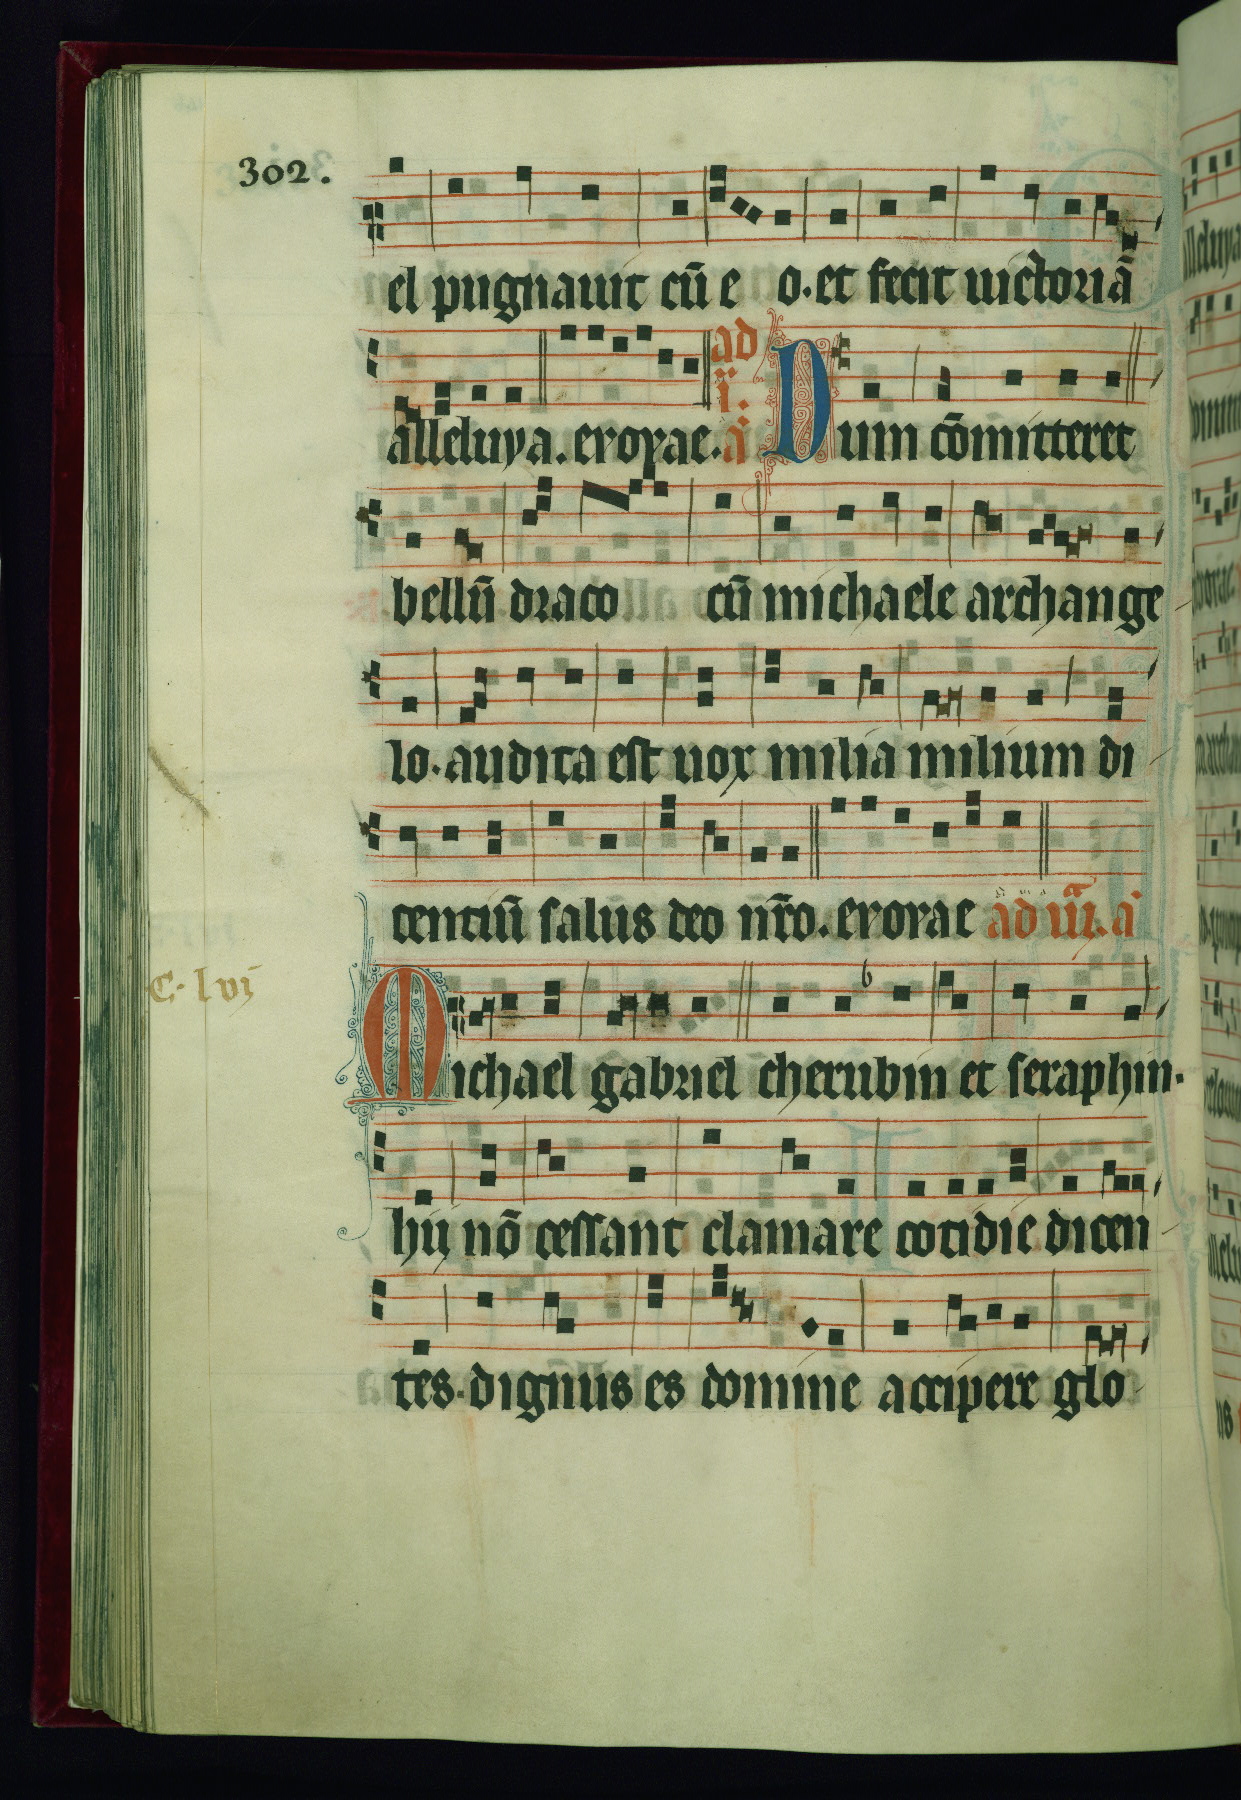 302.
el pugnauit cū e o. et fecit uictoriā
alleluya. evovae. ad i. a Dum cōmitteret
bellū draco cū michaele archange
lo. audita est uox milia milium di
centiū salus deo nr̄o. evovae ad iii. a
C. lvj
Michael gabriel cherubin et seraphin.
hij nō cessant clamare cotidie dicen
tes. dignus es domine accipere glo